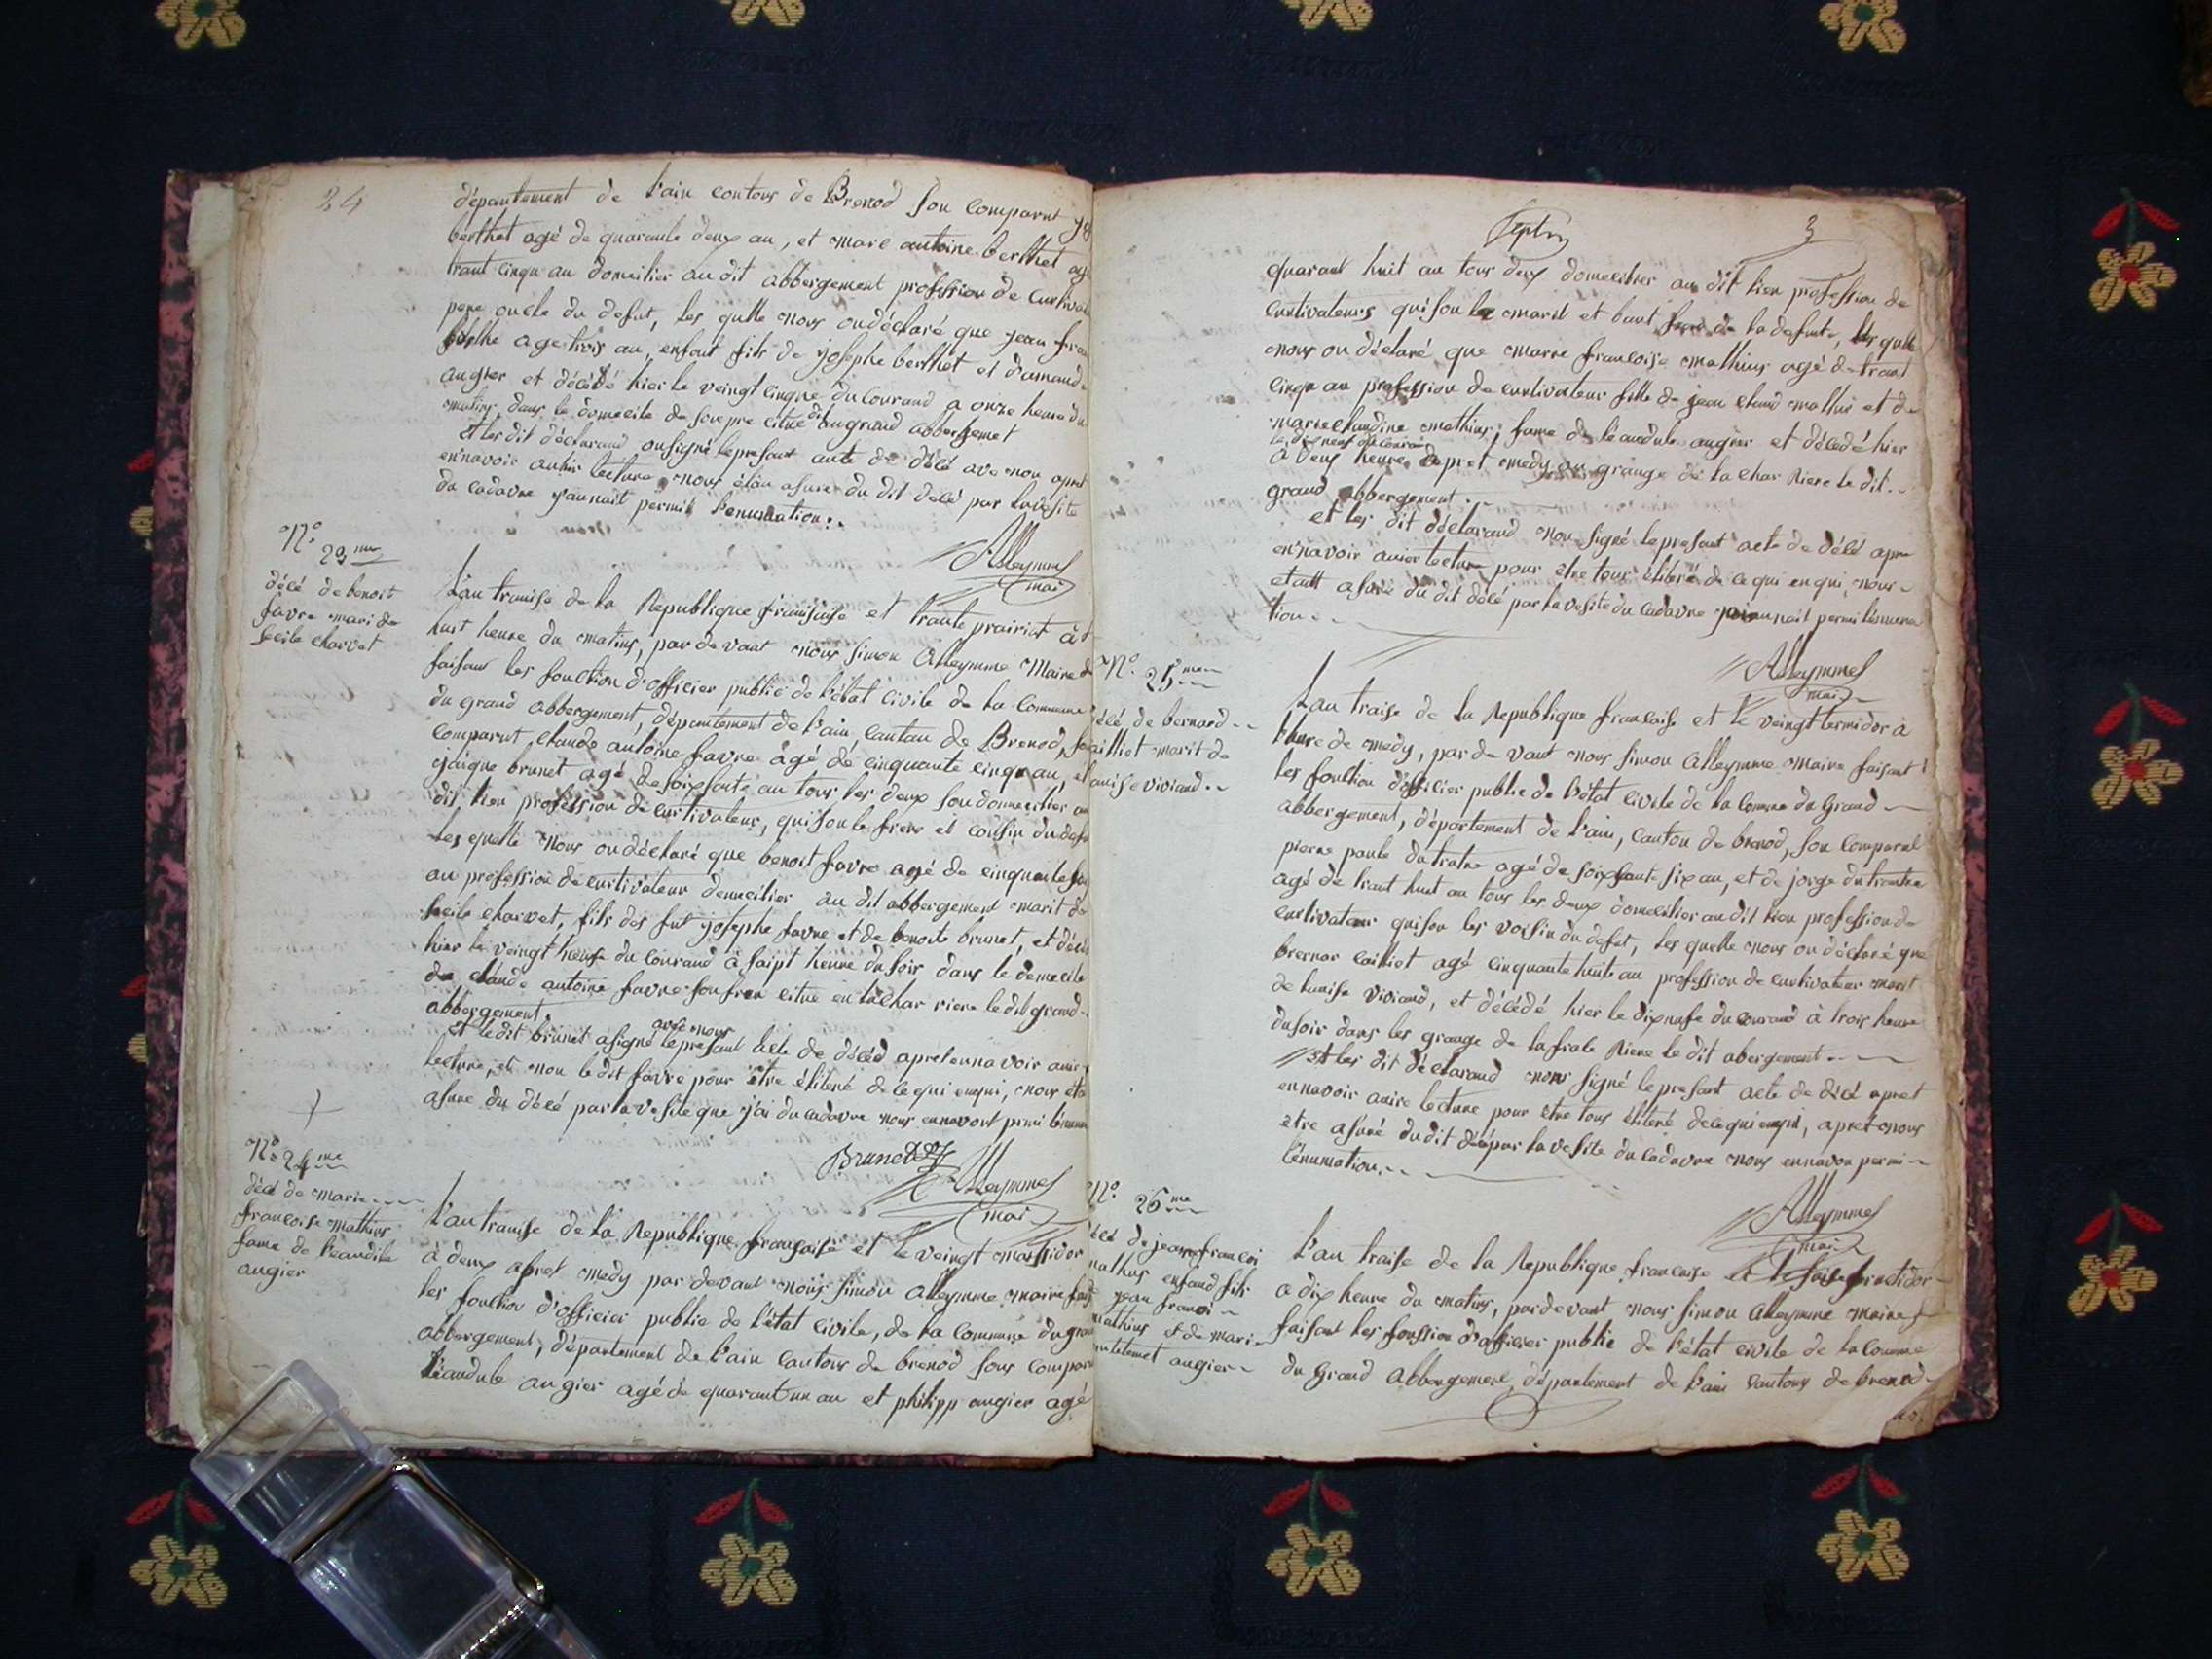 24
département de l'ain contous de Brenod son comparut
berthet agé de quarante deux an, et marc antoine berthet agé
trant cinqu an domicilier au dit abbergement profession de
pere oncle du defut, les qulle nous on déclaré que jean
berthe age trois an, enfant fils de josephe berthet et d'amand
augier et décédé hier le veingt cinque du courand a onze heure du
matins dans le domecile de son pre citué dit au grand abbergemet
et les dit déclarand on signé le presant acte de décé ave nou apret
en navoir lecture nous asuré du dit décé par la vesite
du cadavre permit l'enumation
Alleymme
mai
N°
29 me
décé de benoit
favre mari de
secile charvet
L'an traise de la Republique francaise et trante prairial à
huit heure du matins, par de vant nous simon Alleymme Maire
faisant les fonction d'officier public de l'état civile de la commune
du grand abbergement, département de l'ain cantau de Brenod,
comparut claude antoine favre agé de cinquante cinqu an, et
jaique brunet agé de soixsante an tous les deux son domecilier au
dit lieu profession de curtivateur, qui son le frere et cousin du
les quelle nous on déclaré que benoit favre agé de cinquante
an profession de curtivateur demecilier au dit abbergement marit de
secile charvet, fils des fut josephe favre et de benoite brunet, et
hier le veingt neufe du courand à saipt heure du soir dans le demecile
de claude antoine favre son frere citué en la char riere le dit grand
abbergement.
et le dit brunet a signé le presant avec nous acte de décéd apret ennavoir
lecture, et non le dit favre pour être élitéré de ce qui enqui, nous
asure du décé par la vesite que j'ai du cadavre nous ennavont permi
Brunet Alleymme
mai
N° 24 me
décé de marie
francoise mathius
fame de l'eaudile
augier
L'an traise de la Republique francaise et le veingt massidor
à deux apret medy par devant nous simon Alleymme maire
les fonction d'officier public de l'état civile, de la commune du
abbergement, département de l'ain cantons de brenod sons
l'eaudule augier agé de quarant un an et philipp augier agé
3
quarant huit an tous deux domecilier au dit lieu profession de
curtivateurs qui son le marit et de la defunte, les qulle
nous on déclaré que marie francoise mathius agé de trant
cinqu an profession de curtivateur fille de jean claud mathiu et de
marie claudine mathius, fame de l'eaudule augier et décédé hier
le dix neuf du courand
à deux heure apret medy au grange de la char Riere le dit
grand abbergement.
et les dit déclarand non signé le presant acte de décé apre
en navoir lecture pour etre tous élitéré de ce qui en qui, nous
asuré du dit décé par la vesite du cadavre permi
tion
Alleymme
mai
N°
25 me
décé de bernard
marit de
viviand
L'an traise de la Republique francaise et le veingt termidor à
l'hure de medy, par de vant nous simon Alleymme maire faisant
les fonction d'officier public de l'état civile de la comme du Grand
abbergement, département de l'ain, canton de brenod, son comparut
pierre paule dutratre agé de soixsante six an, et de jorge dutraitre
agé de trant huit an tous les deux domecilier au dit lieu profession de
curtivateur qui son les voisin du defut, les quelle nous on déclaré que
brernar cailliot agé cinquante huit an profession de curtivateur marit
de lauise viviand, et décédé hier le dix nufe du courand à trois heure
du soir dans les grange de la Riere le dit abergement
et les dit déclarand non signé le presant acte de décé apret
ennavoir lecture pour être tous élitéré de ce qui enqui, apret nous
etre asuré du dit décé par la vesite du cadavre nous ennavon permi
l'énumation.
Alleymme
mai
N° 26 me
décé de jean francoi
mathus enfand fils
jean francoi
mathius et de mari
augier
L'an traise de la Republique francaise et le saise fructidor
a dix heure du matins, par de vant nous simon Alleymme maire
faisant les fonssion d'officier public de l'état civile de la comme
du Grand Abbergement, département de l'ain cantons de brenod